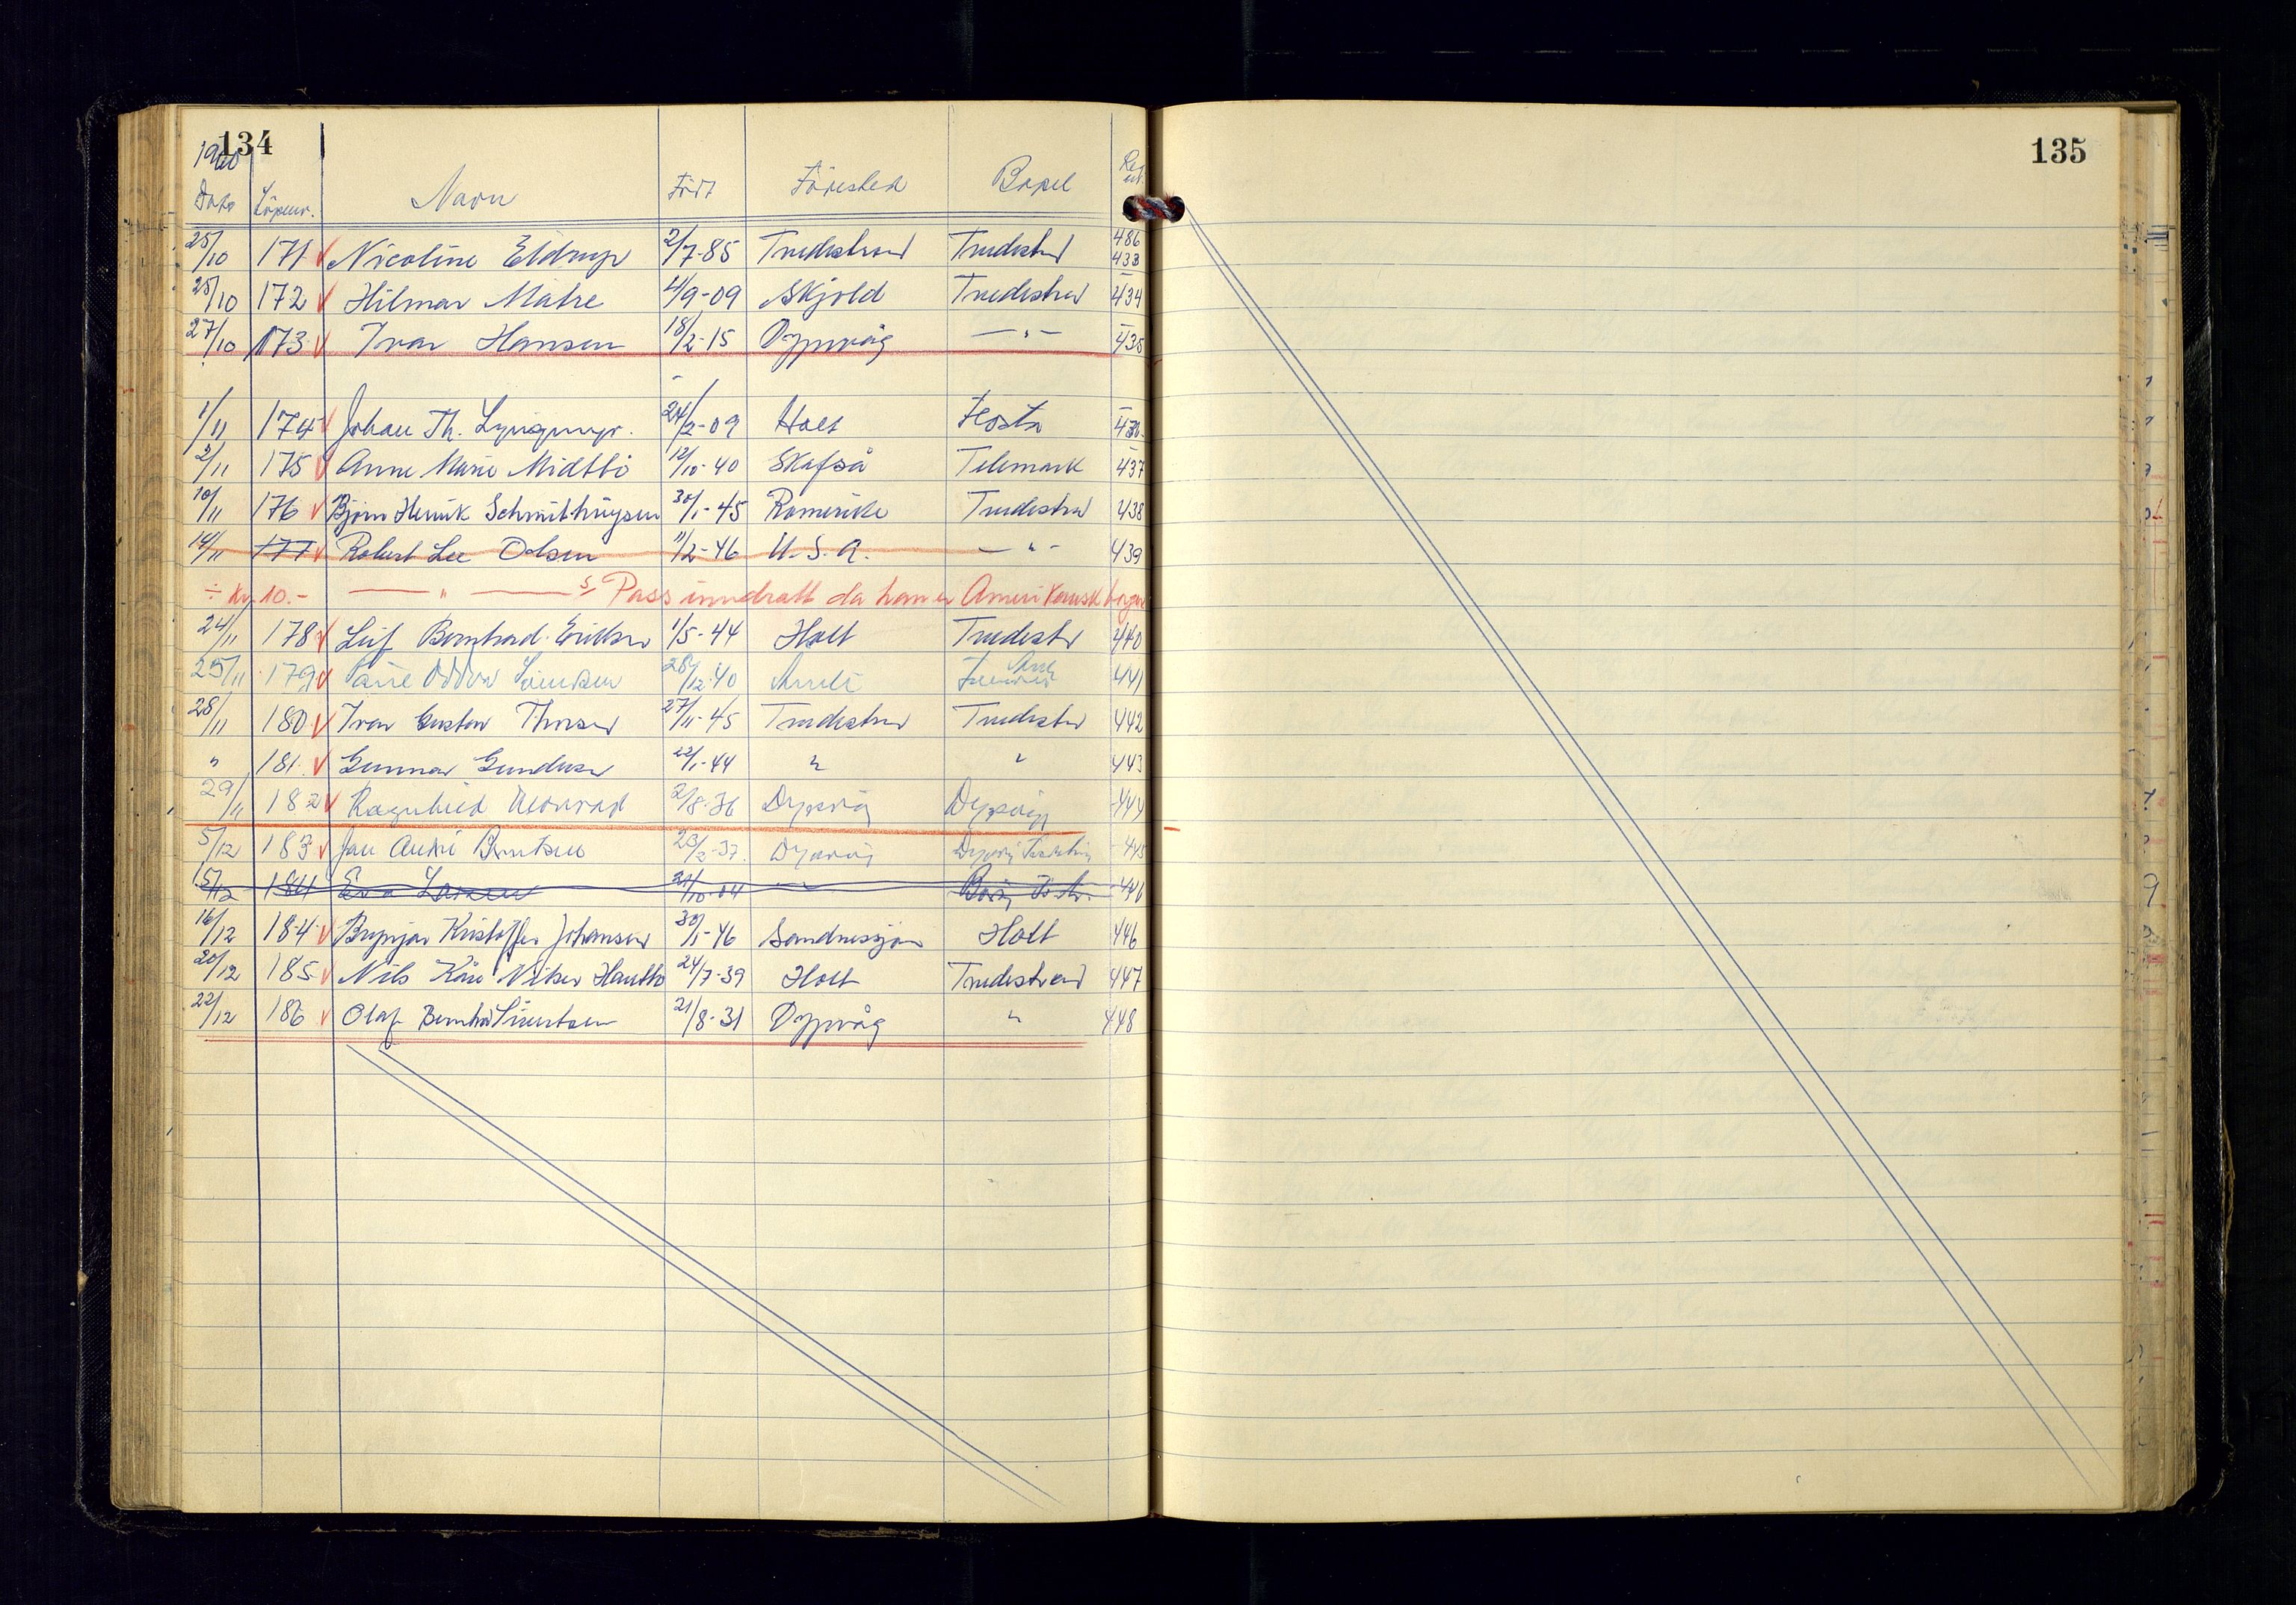 134
1960
Dato Löpenr. Navn Født Födested Bopel Reg. nr.
25/10 171 Nicoline Eldrup 2/7-85 Tvedestrand Tvedestrd 486 433
25/10 172 Hilmar Matre 4/9-09 Skjold Tvedestrd 434
27/10 173 Ivar Hansen 18/2-15 Dypvåg — " — 435
1/11 174 Johan Th. 24/2-09 Holt Flosta
2/11 175 Anne Marie Midtbö 12/10-40 Skafså Telemark 437
10/11 176 Björn Henrik 30/1-45 Romerike Tvedestrd 438
14/11 177 Robert Lee Olsen 11/2-46 U.S.A. — " — 439
÷ kr. 10.- — " — Pass inndratt da han er Amerikansk borger
24/11 178 Leif Bernhard Eriksen 1/5-44 Holt Tvedestr 440
25/11 179 Oddvar 28/12-40 441
28/11 180 Ivar Gustav Thorsen 27/11-45 Tvedestrand Tvedestrd 442
" 181 Gunnar Gundersen 22/1-44 " " 443
29/11 182 Ragnhild 2/8-36 Dypvåg Dypvåg 444
5/12 183 Jan André Berntsen 23/2-37 Dypvåg Dypvåg 445
15/12 184 Eva Larsen 21/10-04 446
16/12 184 Brynjar Kristoffer Johansen 30/1-46 Sandnessjøen Holt 446
20/12 185 Nils Kåre 24/7-39 Holt Tvedestrand 447
22/12 186 Olaf Sivertsen 21/8-31 Dypvåg " 448
135